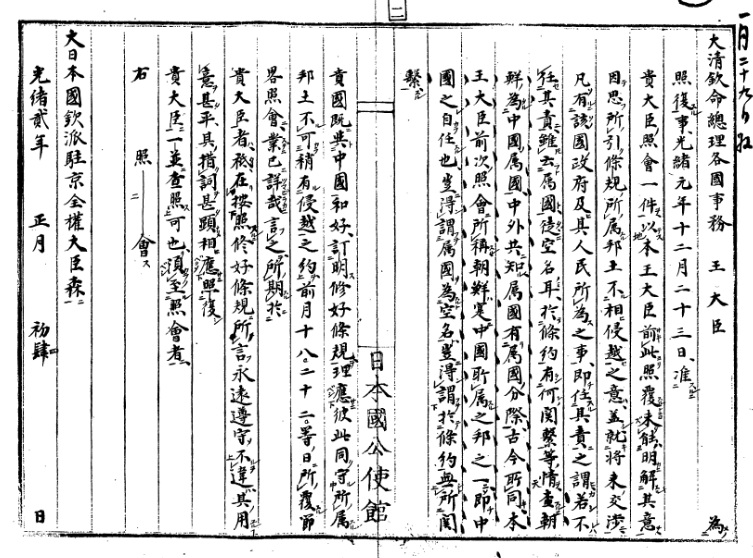 大清欽命總理各國事務 王大臣 為
照復事光緒元年十二月二十三日准
貴大臣照會一件以本王大臣前此照覆未能明解其意
因思所引條規所属邦土不相侵越之意盖就將来交渉
凡有該國政府及其人民所為之事即任其責之謂若不
任其責雖云属國徒空名耳於條約有何関繫等情査朝
鮮為中國属國中外共知属國有属國分際古今所同本
王大臣前次照會所稱朝鮮寔中國所属之邦之一即中
國之自任也豈得謂属國為空名豈得謂於條約無所関
繫
日本國公使館
貴國既與中國和好訂明修好條規理應彼此同守所属
邦土不可稍有侵越之約前月十八二十二等日所覆節
畧照會業已詳哉言之所期於
貴大臣者祇在按照修好條規所言永遠遵守不違其用
意甚平其措詞甚顕相應照復
貴大臣一並査照可也須至照會者
右照會
大日本國欽派駐京全權大臣森
光緒貳年 正月 初肆 日